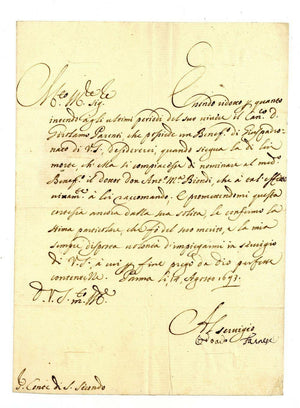 M.to Ill.re Sig.
Essendo ridotto, a quanto
intendo agli ultimi periodi del suo vivere il Can.co D.
Girolamo Parenti che possiede un Benef.o di Giuspadro-
nato di V.S. desidererei, quando segua la di lui
morte, che Ella si compiacesse di nominare al med.o
Benef.o il dottor Don Ant. M.a Biondi, che a tal
a lei raccomando. E promettendomi questa
cortesia ancora dalla sua solita, le confermo la
stima particolare, che fò del suo merito, e la mia
sempre disposta volontà d'impiegarmi in servigio
di V.S. à cui per fine prego da Dio perfetta
contentezza. Parma li Agosto 1693.
D. V. S. M.to Ill.re
Al servigio
Odoardo Farnese
S.r Conte di S. Secondo